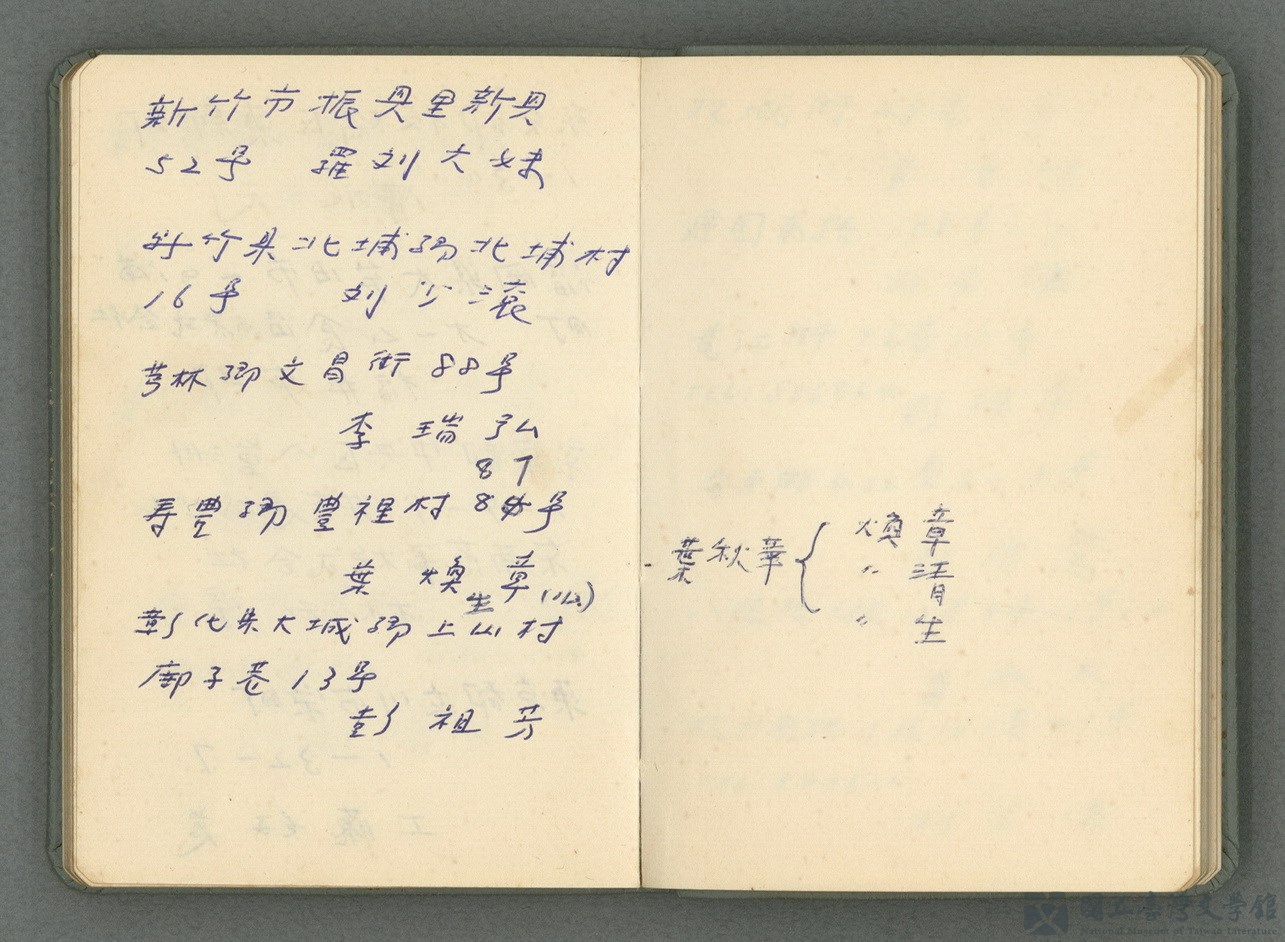 新竹市振興里新興
52号 羅刘大妹
新竹県北埔鄉北埔村
16号 刘少滾
芎林鄉文昌街88号
李瑞弘
87
寿豊鄉豊裡村8号
葉煥章(公)
生
彰化県大城鄉上山村
廍子巷13号
彭祖芳
葉秋華{煥章
〃清
〃生
國立臺灣文學館
National Museum of Taiwan Literature